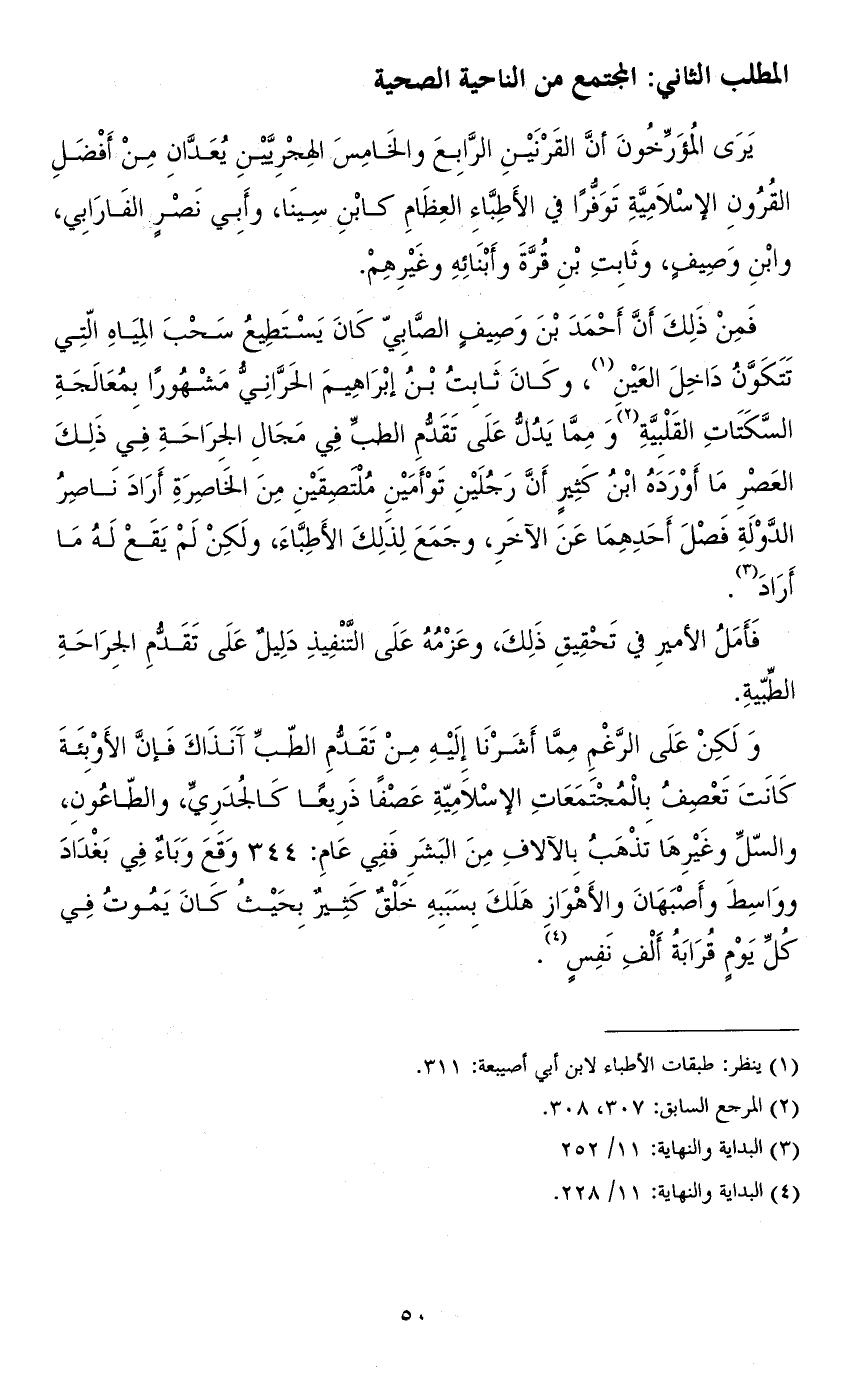 المطلب الثاني: المجتمع من الناحية الصحية
يَرَى المُؤَرِّخُونَ أنَّ القَرْنَيْنِ الرَّابِعَ والخَامِسَ الهِجْرِيَّيْنِ يُعَدَّانِ مِنْ أَفْضَلِ
القُرُونِ الإِسْلَامِيَّةِ تَوَفُّرًا في الأَطِبَّاءِ العِظَامِ كَابْنِ سِينَا، وأَبي نَصْرٍ الفَارَابي،
وابْنِ وَصِيفٍ، وثَابِتِ بْنِ قُرَّةَ وأَبْنَائِهِ وغَيْرِهِمْ.
فَمِنْ ذَلِكَ أَنَّ أَحْمَدَ بْنَ وَصِيفٍ الصَّابِيّ كَانَ يَسْتَطِيعُ سَحْبَ المِيَاهِ الّتِي
تَتَكَوَّنُ دَاخِلَ العَيْنِ(١)، وكَانَ ثَابِتُ بْنُ إبْرَاهِيمَ الحَرَّانِيُّ مَشْهُورًا بِمُعَالَجَةِ
السَّكَتَاتِ القَلْبِيَّةِ(٢) وَ مِمَّا يَدُلُّ عَلَى تَقَدُّمِ الطبِّ فِي مَجَالِ الجِرَاحَةِ فِي ذَلِكَ
العَصْرِ مَا أَوْرَدَهُ ابْنُ كَثِيرٍ أَنَّ رَجُلَيْنِ تَوْأَمَيْنِ مُلْتَصِقَيْنِ مِنَ الخَاصِرَةِ أَرَادَ نَاصِرُ
الدَّوْلَةِ فَصْلَ أَحَدِهِمَا عَنَ الآخَرِ، وجَمَعَ لِذَلِكَ الأَطِبَّاءَ، ولَكِنْ لَمْ يَقَعْ لَهُ مَا
أَرَادَ(٣).
فَأَمَلُ الأميرِ في تَحْقِيقِ ذَلِكَ، وعَزْمُهُ عَلَى التَّنْفِيذِ دَلِيلٌ عَلَى تَقَدُّمِ الجِرَاحَةِ
الطِّبّيةِ.
وَ لَكِنْ عَلَى الرَّغْمِ مِمَّا أَشَرْنَا إِلَيْهِ مِنْ تَقَدُّمِ الطّبِّ آنَذَاكَ فَإنَّ الأَوْبِئَةَ
كَانَتَ تَعْصِفُ بِالْمُجْتَمَعَاتِ الإسْلَامِيّةِ عَصْفًا ذَرِيعًا كَالجُدَرِيِّ، والطّاعُون،
والسّلِّ وغَيْرِهَا تذْهَبُ بِالآلافِ مِنَ البَشَرِ فَفِي عَامِ: ٣٤٤ وَقَعَ وَبَاءٌ فِي بَغْدَادَ
ووَاسِطَ وأَصْبَهَانَ والأَهْوَازِ هَلَكَ بِسَبَبِهِ خَلْقٌ كَثِيرٌ بِحَيْثُ كَانَ يَمُوتُ فِي
كُلِّ يَوْمٍ قُرَابَةُ أَلْفِ نَفِسٍ(٤).
(١) ينظر: طبقات الأطباء لابن أبي أصيبعة: ٣١١.
(٢) المرجع السابق: ٣٠٧، ٣٠٨.
(٣) البداية والنهاية: ١١/ ٢٥٢
(٤) البداية والنهاية: ١١/ ٢٢٨.
٥٠